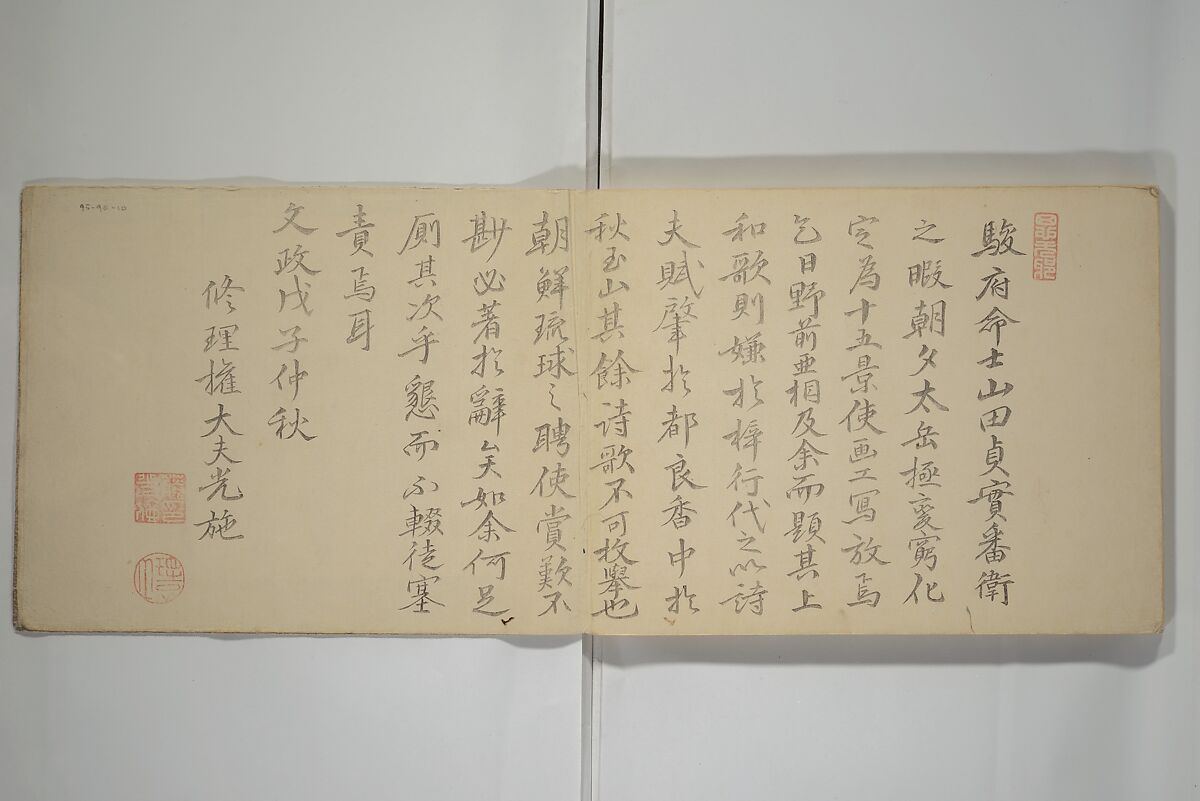 駿府命士山田貞實番衛
之暇朝夕太岳極變窮化
定為十五景使画工寫放焉
乞日野前亜相及余而題其上
和歌則嫌於梓行代之以詩
夫賦肇於都良香中於
秋玉山其餘詩歌不可枚舉也
朝鮮琉球之聘使賞歎不
尠必著於辭矣如余何足
厠其次乎懇而不輟徒塞
責焉耳
文政戊子仲秋
修理權大夫光施
95-90-10